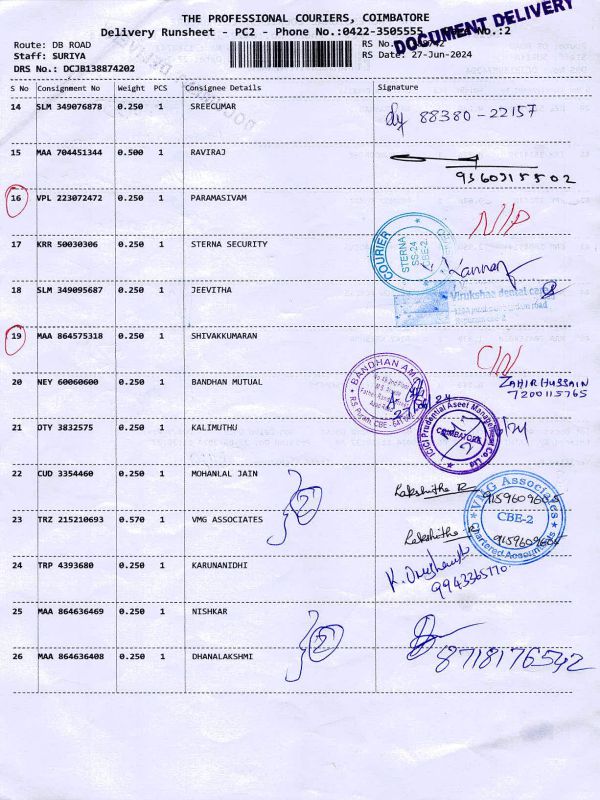 THE PROFESSIONAL COURIERS, COIMBATORE
Delivery Runsheet - PC2 - Phone No.:0422-3505555 No.:2
DOCUMENT DELIVERY
Route: DB ROAD RS No.
Staff: SURIYA RS Date: 27-Jun-2024
DRS No.: DCJB138874202
S No Consignment No Weight PCS Consignee Details Signature
14 SLM 349076878 0.250 1 SREECUMAR 88380-22157
15 MAA 704451344 0.500 1 RAVIRAJ
9360315502
16 VPL 223072472 0.250 1 PARAMASIVAM N/P
17 KRR 50030306 0.250 1 STERNA SECURITY
COURIER STERNA SS-24 CBE-2
Kannan
18 SLM 349095687 0.250 1 JEEVITHA
Virukshaa dental care
19 MAA 864575318 0.250 1 SHIVAKKUMARAN C/N
20 NEY 60060600 0.250 1 BANDHAN MUTUAL ZAHIR HUSSAIN
7200115765
BANDHAN AM
R.S Puram, CBE - 641
21 OTY 3832575 0.250 1 KALIMUTHU
ICICI Prudential Asset Management Co Ltd
COIMBATORE
22 CUD 3354460 0.250 1 MOHANLAL JAIN 2 Lakshitha R 9159609685
23 TRZ 215210693 0.570 1 VMG ASSOCIATES Lakshitha R 9159609685
VMG Associates
CBE-2
Chartered Accountants
24 TRP 4393680 0.250 1 KARUNANIDHI
9943365770
25 MAA 864636469 0.250 1 NISHKAR 2
26 MAA 864636408 0.250 1 DHANALAKSHMI 8718176542